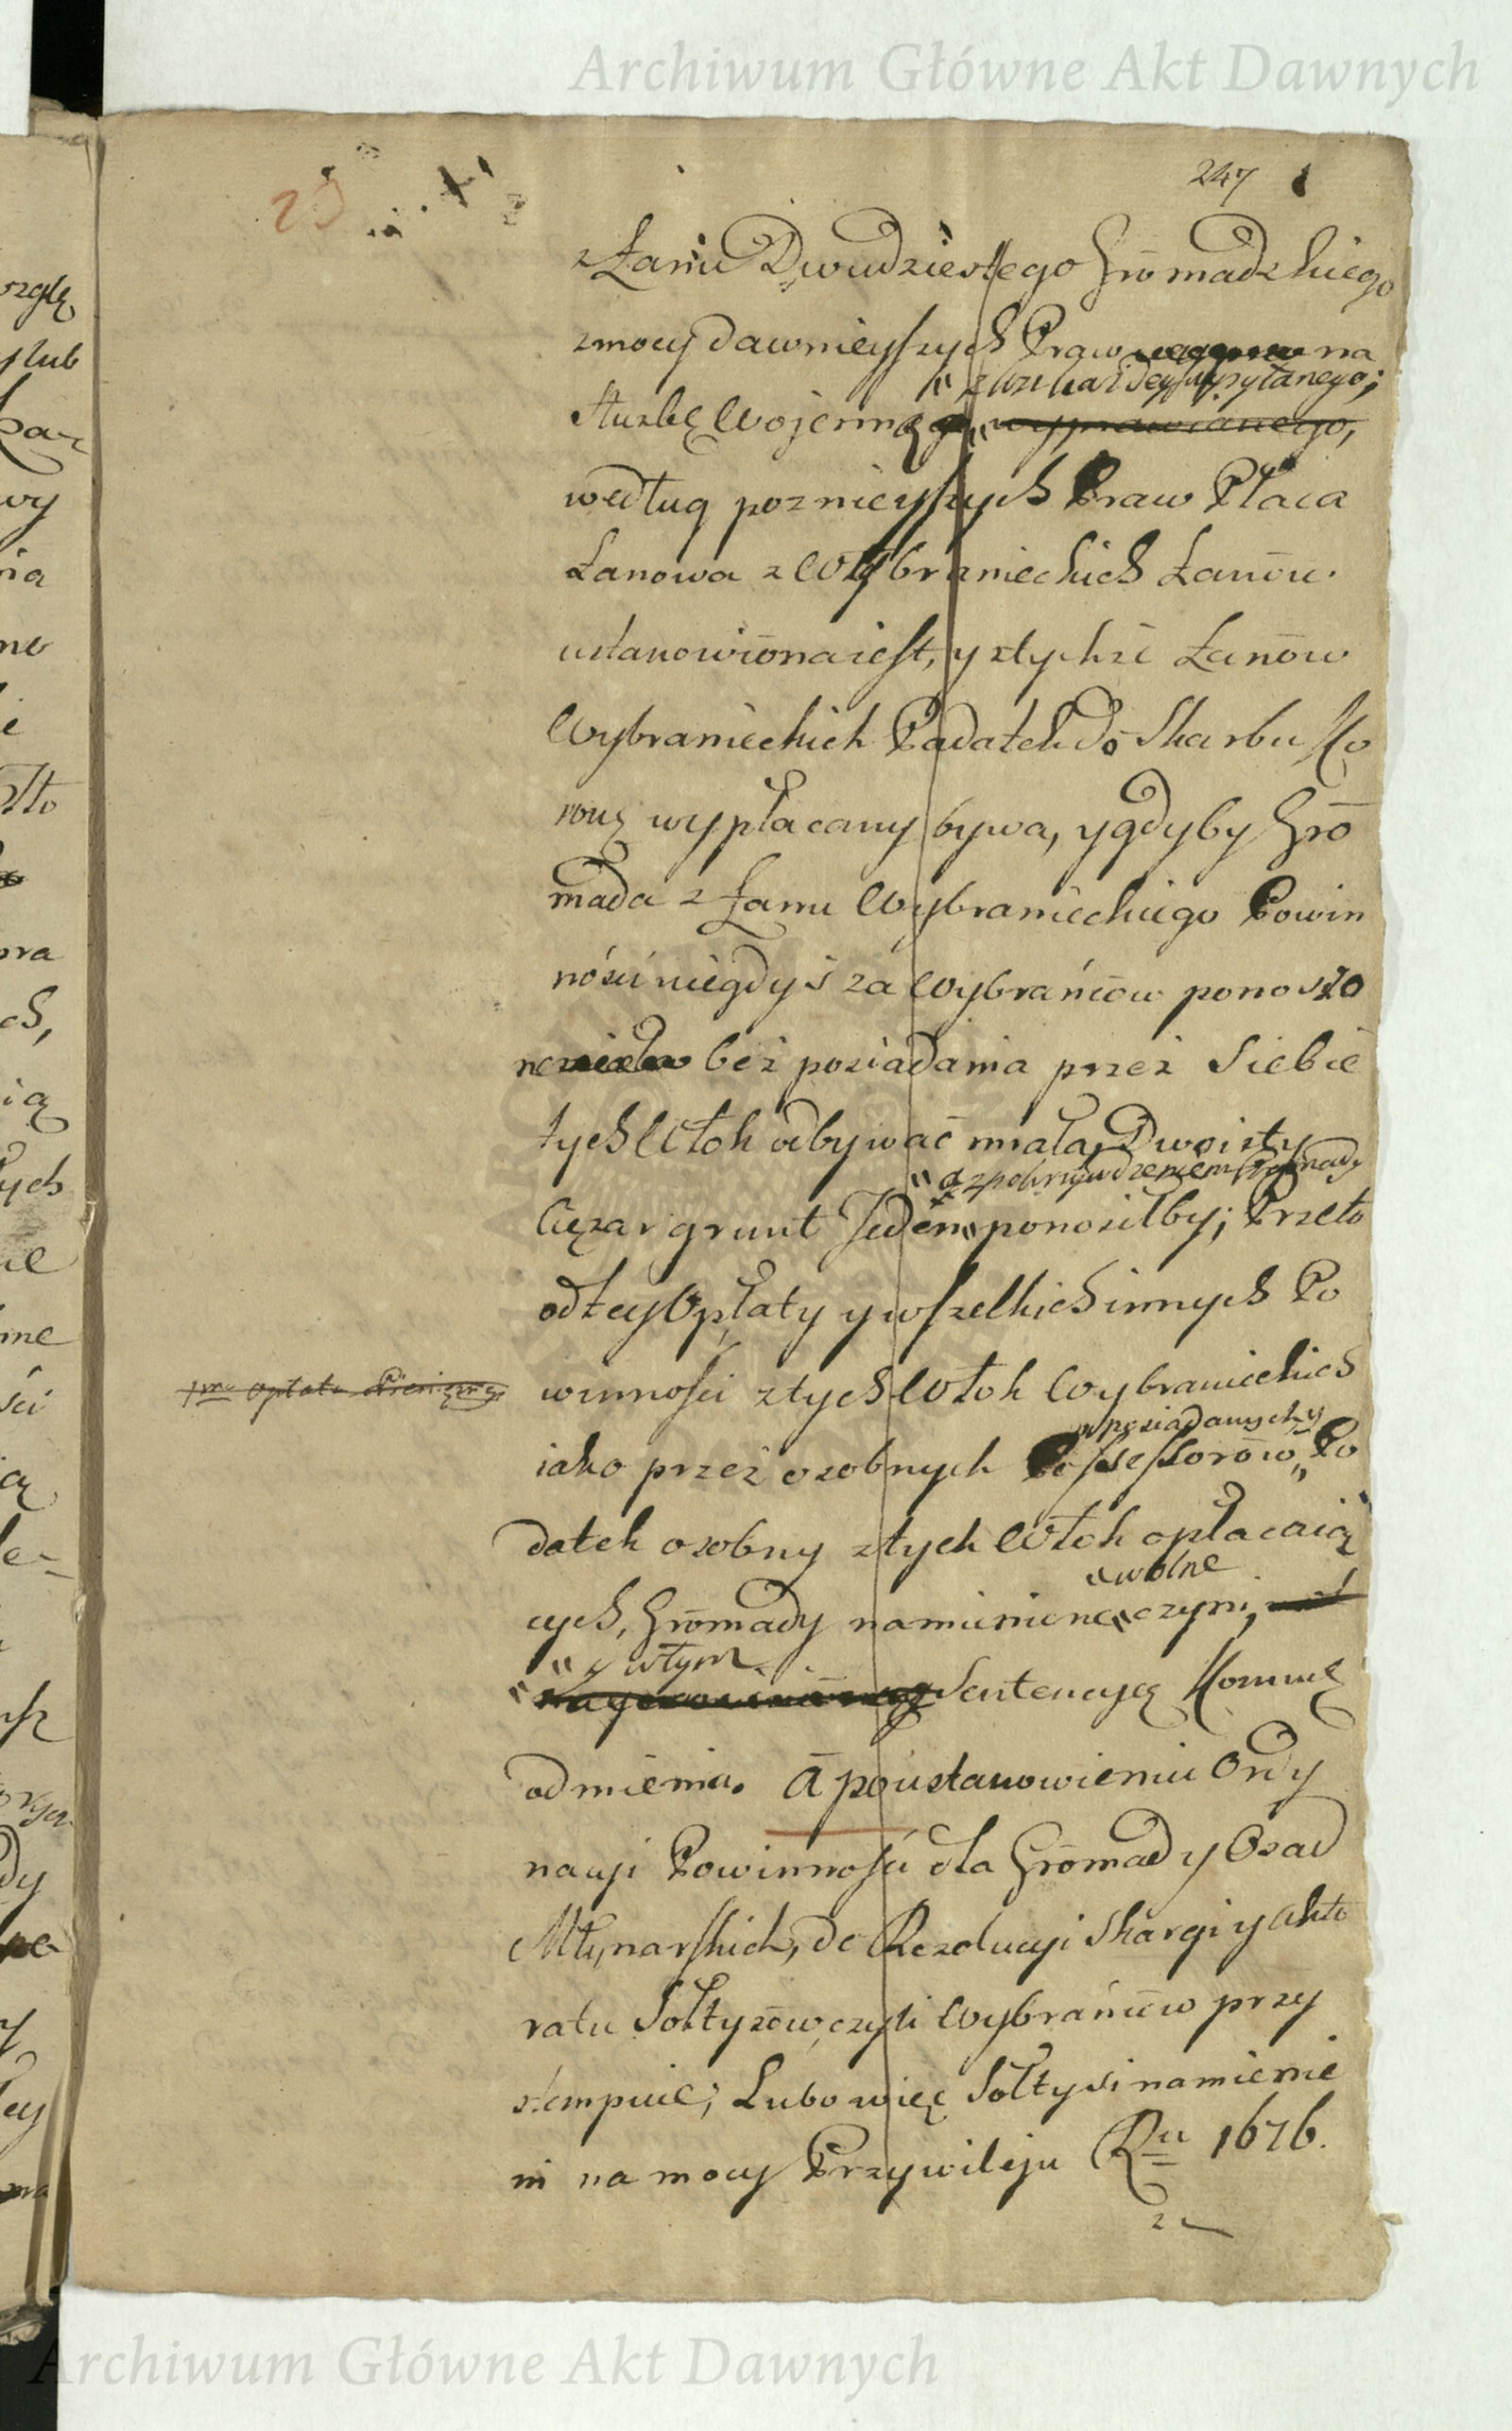 Archiwum Główne Akt Dawnych
247
z Łanu Dwudziestego Gromadzkiego
z mocy dawnieyszych Praw na
"z Wsi każdey wysyłanego;
służbę Wojenną "wyprawianego,
według poznieyszych Praw Płaca
Łanowa z Wybranieckich Łanōw.
ustanowiōna iest, y z tychże Łanōw
Wybranieckich Podatek do Skarbu Ko
ronę wypłacany bywa, y gdyby Gro
mada z Łanu Wybranieckiego Powin
ności niegdyś za Wybrańcōw ponoszo
ne bez posiadania przez Siebie
tych Włok odbywać miała, Dwoisty
"a z pokrzywdzeniem Gromady
Ciężar grunt Jeden "ponosiłby; Przeto
od tey Opłaty y wszelkich innych Po
winności z tych Włok Wybranieckich
1mo opłata Pieniężną
posiadanych y
iako przez osobnych Possessorōw "Po
datek osobny z tych Włok opłacaią
"wolne
cych, Gromady namienione "czyni,
"y w tym
Sentencyą Kommę
odmienia. A po ustanowieniu Ordy
nacyi Powinności dla Gromad y Osad
Młynarskich, do Rezolucyi Skargi y Akto
ratu Sołtysōw, czyli Wybrańcōw przy
stempuie; Lubo więc Sołtysi namienie
ni na mocy Przywileju Ru 1676.
Archiwum Główne Akt Dawnych